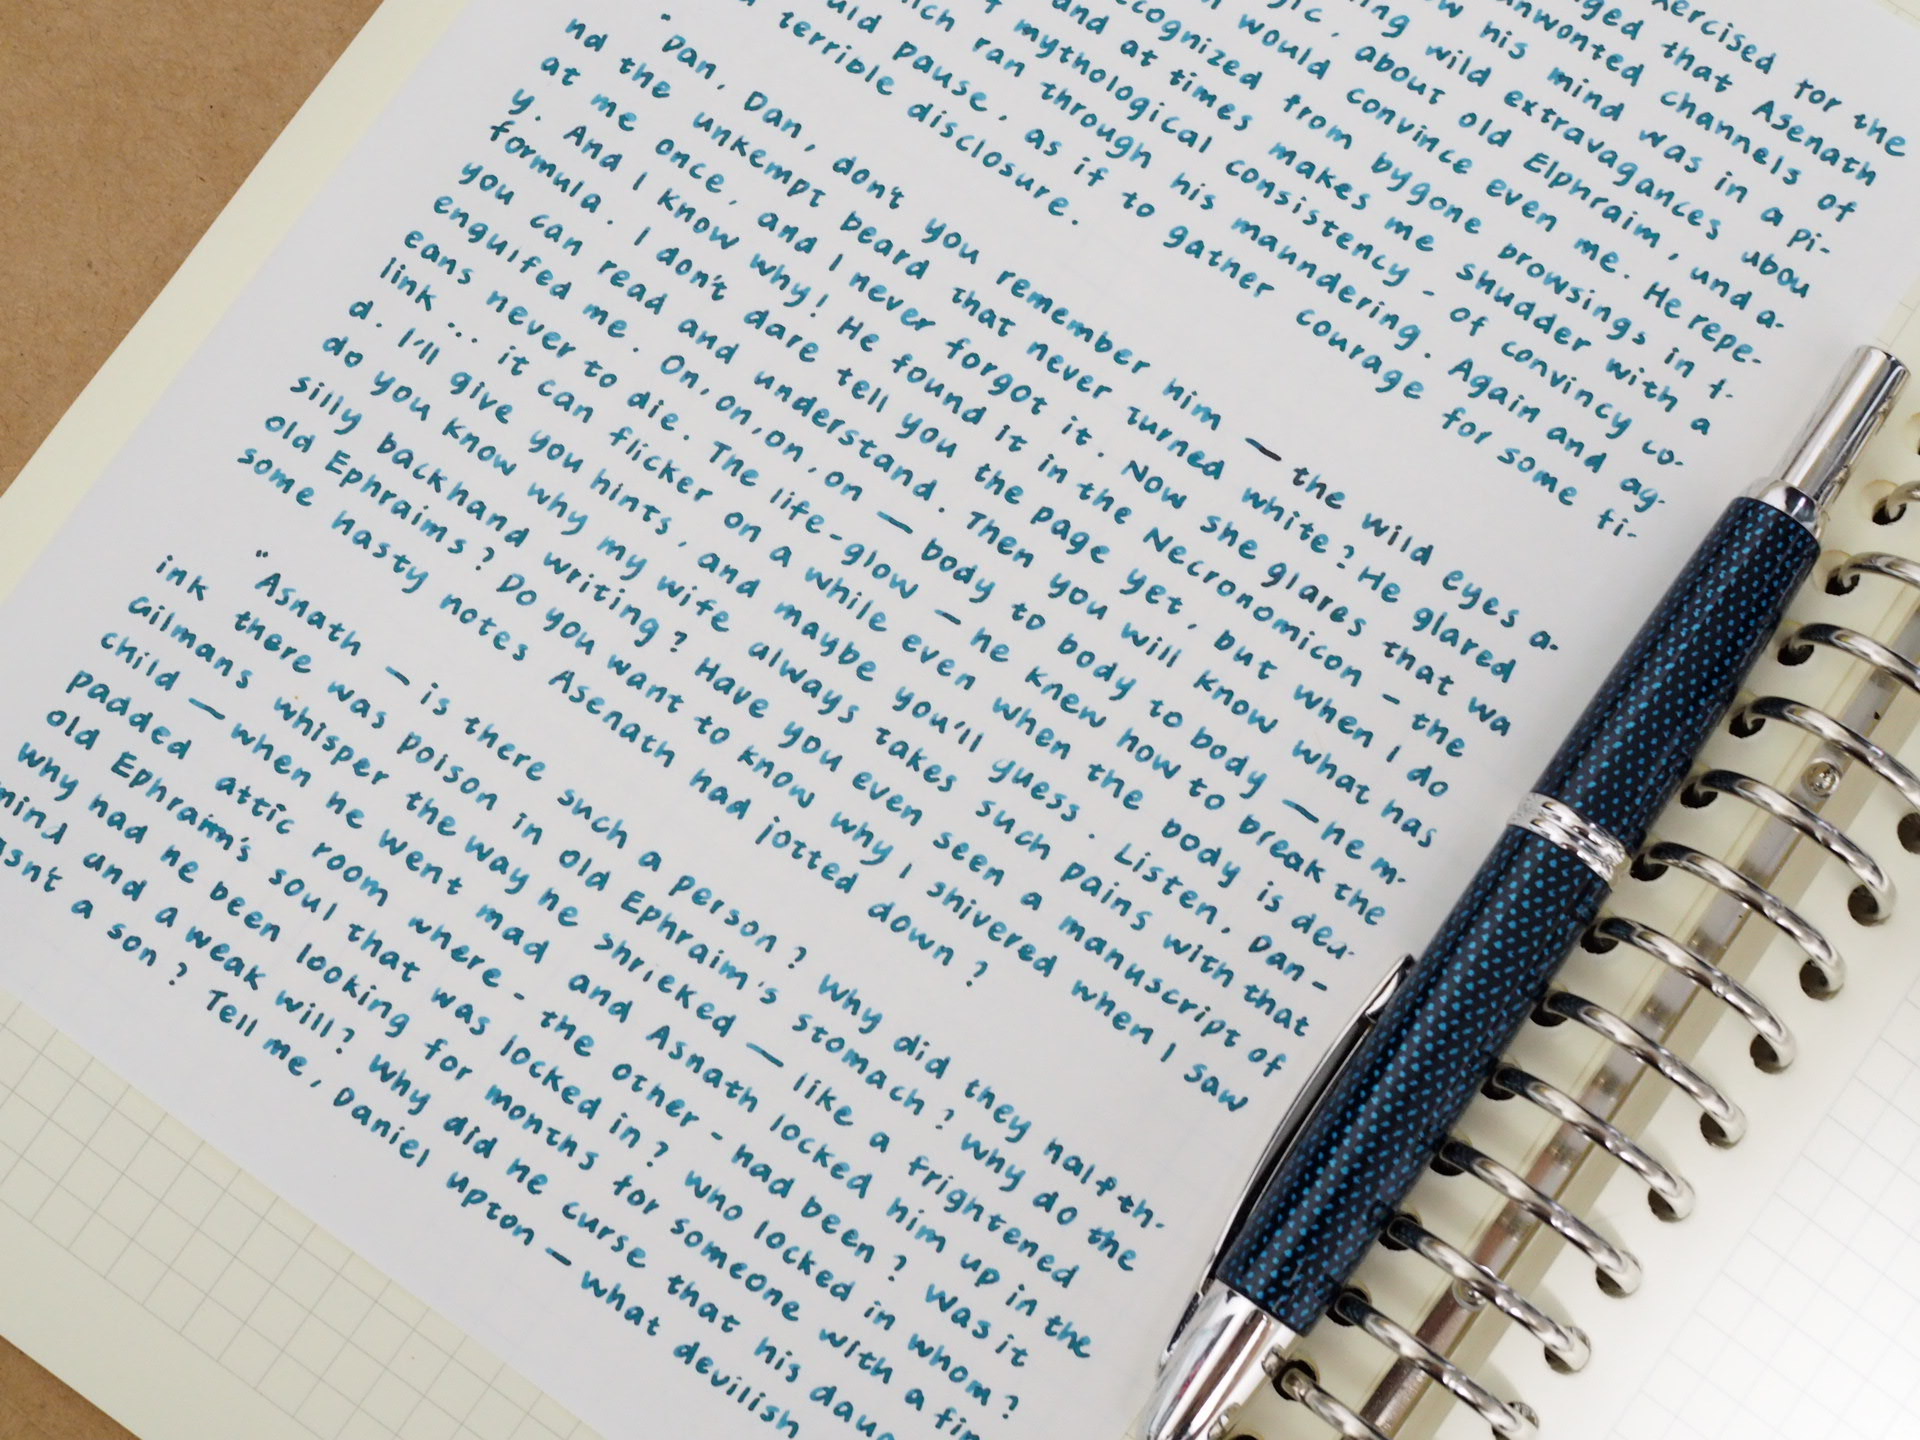 ercised for the
ged that Asenath
unwonted channels of
his mind was in a pi-
ing wild extravagances abou
gic, about old Elphraim, und a-
would convince even me. He repe-
ecognized from bygone browsings in f-
and at times makes me shudder with a
f mythological consistency - of convincy co-
hich ran through his maundering. Again and ag-
uld pause, as if to gather courage for some fi-
terrible disclosure.
"Dan, Dan, don't you remember him — the wild eyes a-
nd the unkempt beard that never turned white? He glared
at me once, and I never forgot it. Now she glares that wa
y. And I know why! He found it in the Necronomicon - the
formula. I don't dare tell you the page yet, but when I do
you can read and understand. Then you will know what has
engulfed me. On, on, on, on — body to body to body — he m-
eans never to die. The life-glow — he knew how to break the
link ... it can flicker on a while even when the body is dea-
d. I'll give you hints, and maybe you'll guess. Listen, Dan -
do you know why my wife always takes such pains with that
silly backhand writing? Have you even seen a manuscript of
old Ephraims? Do you want to know why I shivered when I saw
some nasty notes Asenath had jotted down?
"Asnath — is there such a person? Why did they half th-
ink there was poison in old Ephraim's stomach? Why do the
Gilmans whisper the way he shrieked — like a frightened
child — when he went mad and Asnath locked him up in the
padded attic room where - the other - had been? Was it
old Ephraim's soul that was locked in? Who locked in whom?
Why had he been looking for months for someone with a fin
mind und a weak will? Why did he curse that his daug
asn't a son? Tell me, Daniel Upton — what devilish